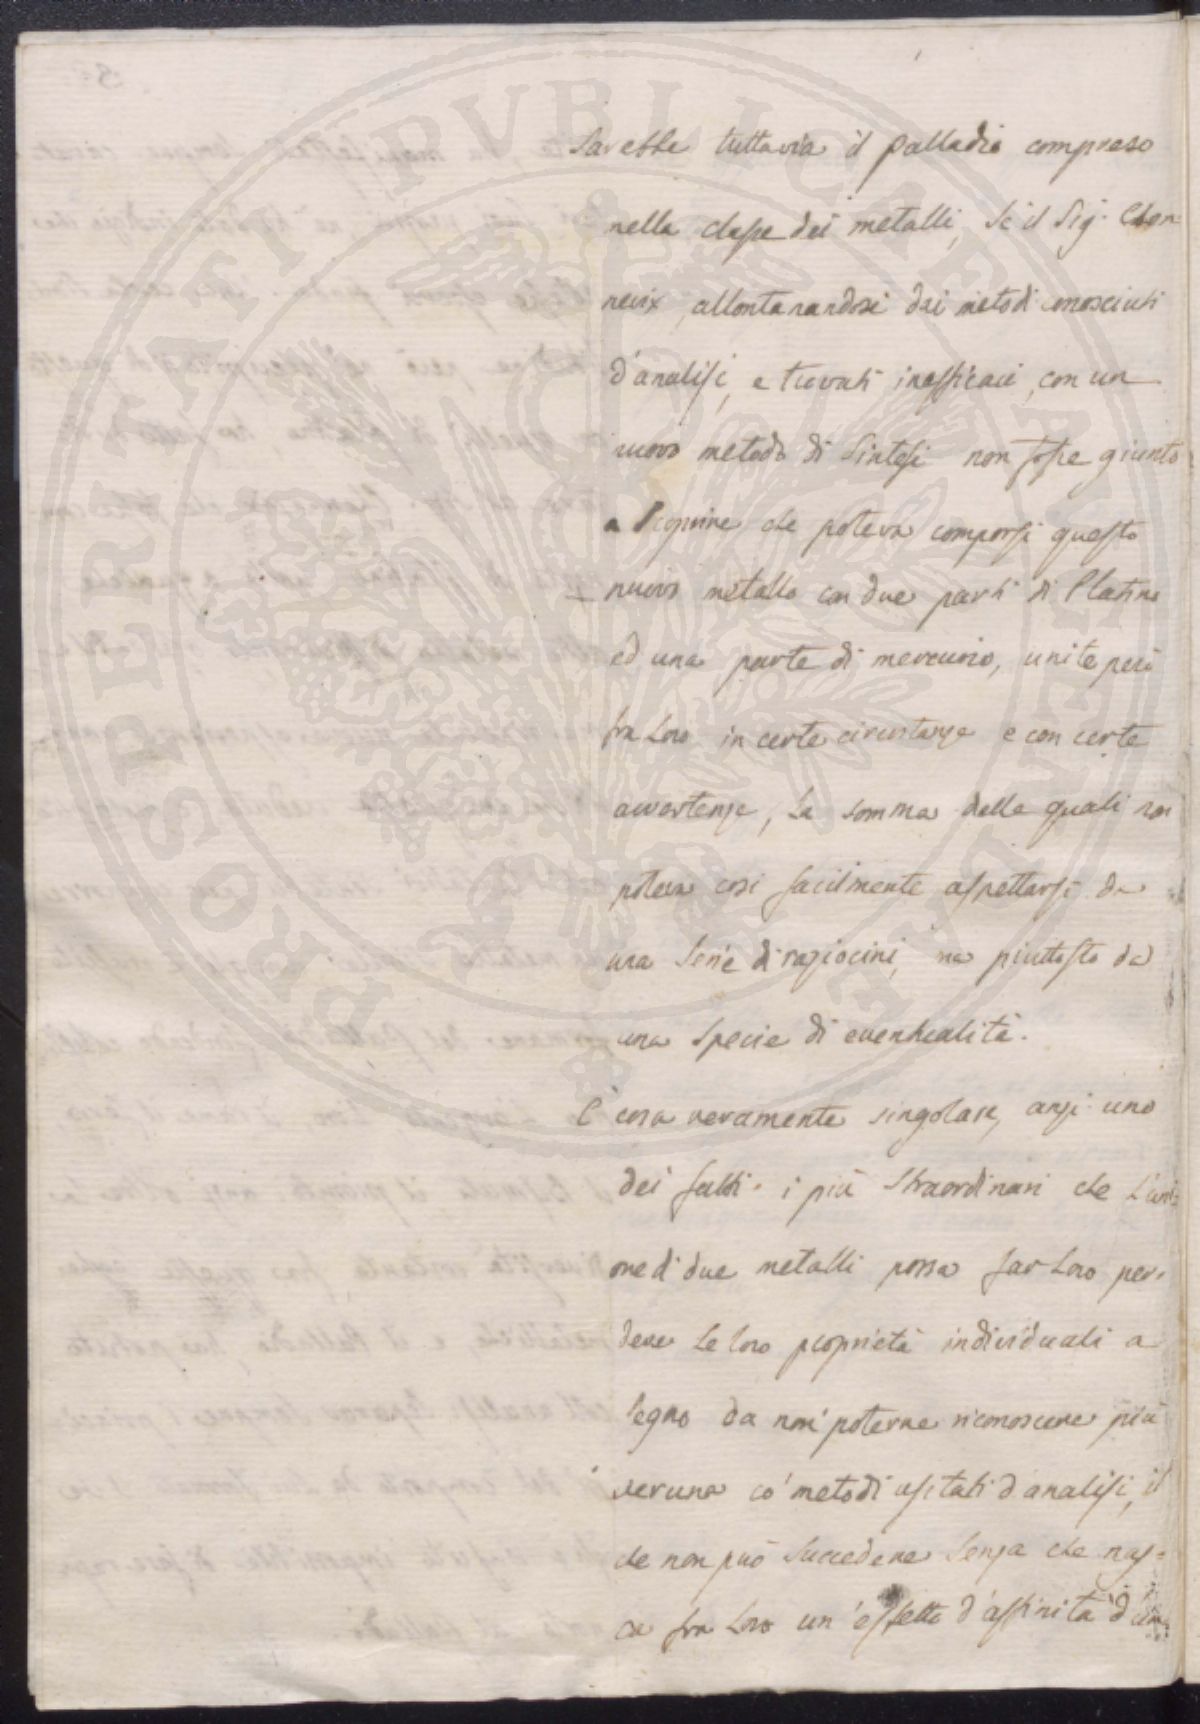 Sarebbe tuttavia il Palladio compreso
nella classe dei metalli, Se il Sig. Chen
nevix, allontanandosi dai metodi conosciuti
d'analisi, e trovati inefficaci, con un
nuovo metodo di Sintesi non fosse giunto
a Scoprire che poteva comporsi questo
nuovo metallo con due parti di Platino
ed una parte di mercurio, unite però
fra Loro in certe circostanze e con certe
avvertenze, La somma delle quali non
poteva così facilmente aspettarsi da
una Serie di raziocini, ma piuttosto da
una Specie di eventualità.
È cosa veramente singolare, anzi uno
dei fatti i più Straordinari che L'uni=
one di due metalli possa far Loro per=
dere Le loro proprietà individuali a
Segno da non poterne riconoscere più
veruna co' metodi usitati d'analisi, il
che non può Succedere Senza che nas=
ca fra Loro un'effetto d'affinità d'una
PROSPERITATI PVBLICAE AVGENDAE